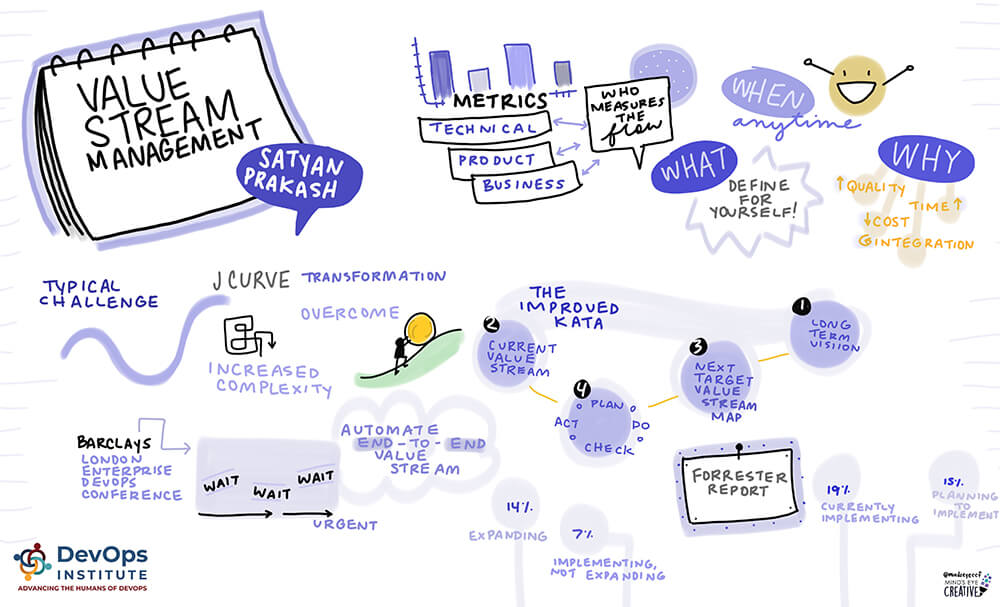 VALUE
STREAM
MANAGEMENT
SATYAN
PRAKASH
METRICS
TECHNICAL
PRODUCT
BUSINESS
WHO
MEASURES
THE
flow
WHEN
anytime
WHAT
DEFINE
FOR
YOURSELF!
WHY
↑QUALITY
TIME↑
↓COST
INTEGRATION
TYPICAL
CHALLENGE
J CURVE TRANSFORMATION
OVERCOME
INCREASED
COMPLEXITY
THE
IMPROVED
KATA
1
LONG
TERM
VISION
2
CURRENT
VALUE
STREAM
3
NEXT
TARGET
VALUE
STREAM
MAP
4
PLAN
ACT DO
CHECK
BARCLAYS
LONDON
ENTERPRISE
DEVOPS
CONFERENCE
WAIT
WAIT
WAIT
URGENT
AUTOMATE
END-TO-END
VALUE
STREAM
FORRESTER
REPORT
14%
EXPANDING
7%
IMPLEMENTING,
NOT EXPANDING
19%
CURRENTLY
IMPLEMENTING
15%
PLANNING
TO
IMPLEMENT
DevOps
INSTITUTE
ADVANCING THE HUMANS OF DEVOPS
MIND'S EYE
CREATIVE